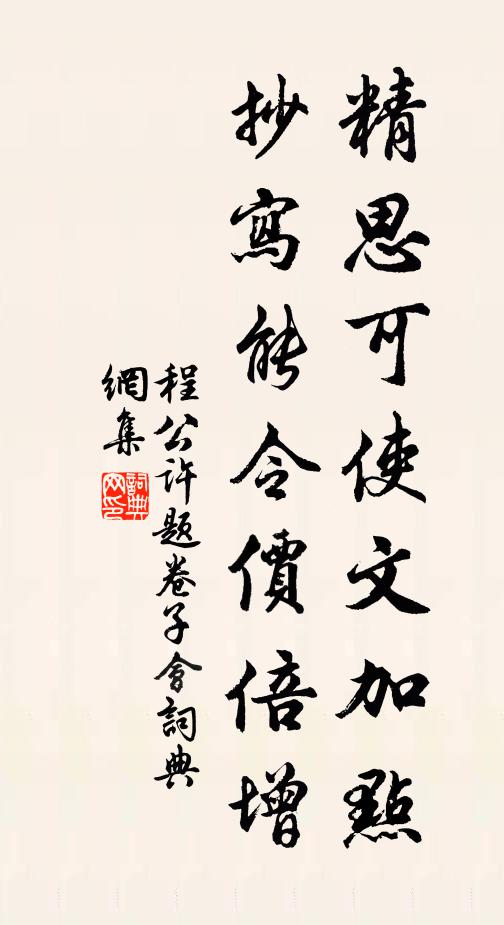 精思可使文加點
抄寫能令價倍增
程公許題卷子會詞典
網集
詞典网印